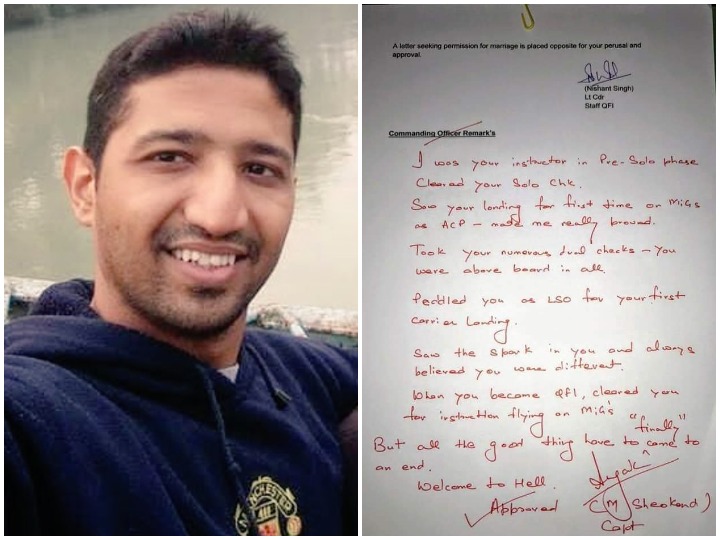 A letter seeking permission for marriage is placed opposite for your perusal and
approval.
(Nishant Singh)
Lt Cdr
Staff QFI
Commanding Officer Remark's
I was your instructor in Pre-Solo phase
Cleared your Solo Chk.
Saw your landing for first time on MiGs
as ACP – made me really proud.
Took your numerous dual checks – You
were above board in all.
Peddled you as LSO for your first
carrier Landing.
Saw the spark in you and always
believed you were different.
When you became QFI, cleared you
for instruction flying on MiG's
"finally"
But all the good thing have to come to
an end.
Welcome to Hell.
Approved
(M Sheokand)
Capt
MANCHESTER